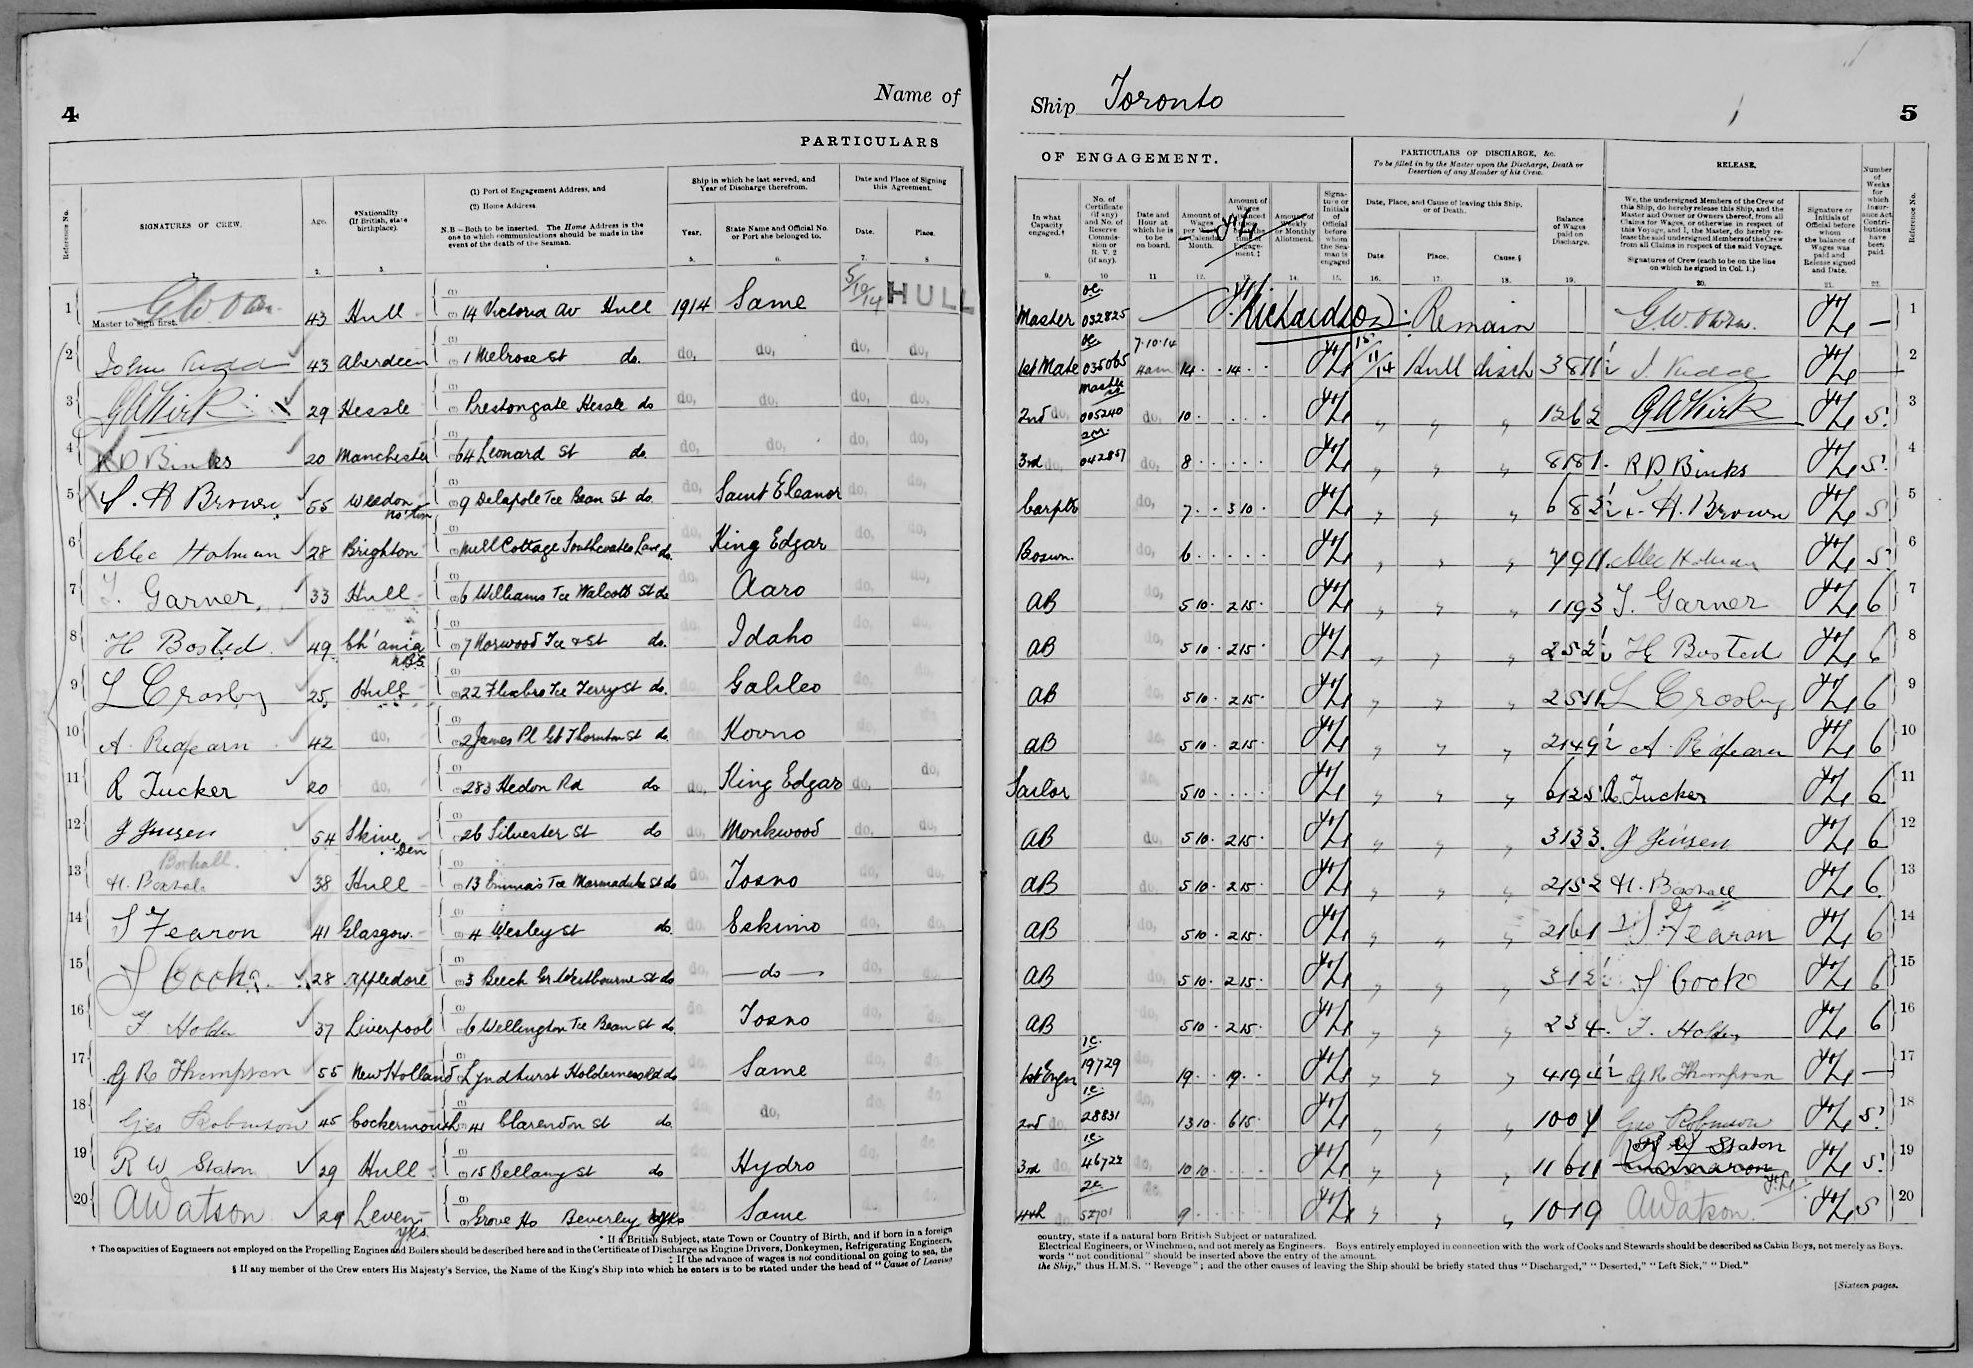 4
Name of
PARTICULARS
Reference No.
SIGNATURES OF CREW.
Age.
*Nationality (If British, state birthplace).
(1) Port of Engagement Address, and
(2) Home Address
N.B—Both to be inserted. The Home Address is the one to which communications should be made in the event of the death of the Seaman.
Ship in which he last served, and Year of Discharge therefrom.
Year.
State Name and Official No. or Port she belonged to.
Date and Place of Signing this Agreement.
Date.
Place.
1 43 Hull 14 Victoria Av Hull 1914 Same 5/10/14 HULL
Master to sign first.
2 John 43 Aberdeen 1 Melrose St do. do, do, do, do,
3 G A Kirk 29 Hessle Prestongate Hessle do do, do. do, do,
4 R D Binks 20 Manchester 64 Leonard St do. do, do. do, do,
5 H Brown 55 Weedon 9 Delapole Tce Bean St do. do, Saint Eleanor do, do,
6 Alec Holman 28 Brighton Mill Cottage Southcoates Lane do. do, King Edgar do, do,
7 Garner 33 Hull 6 Williams Tce Walcott St do do, Aaro do, do,
8 H Bosted 49 Ch'ania 7 Norwood Tce & St do. do, Idaho do, do,
9 L Crosby 25 Hull 22 Terry St do. do, Galileo do, do,
10 A. 42 do, 2 James Pl Gt Thornton St do. do, Kovno do, do,
11 R Tucker 20 do, 283 Hedon Rd do do, King Edgar do, do,
12 J Jensen 54 Skive Den 26 Silvester St do do, Monkwood do, do,
Boxhall.
13 H. 38 Hull 13 Emma's Tce Marmaduke St do do, Tosno do, do,
14 Fearon 41 Glasgow 4 Wesley St do. do, Eskimo do, do,
15 Cook 28 Appledore 3 Beech Gr Westbourne St do do, —do— do, do,
16 F Holden 37 Liverpool 6 Wellington Tce Bean St do. do, Tosno do, do.
17 G R Thompson 55 New Holland Lyndhurst Holderness Rd do do, Same do, do.
18 Geo Robinson 45 Cockermouth 41 Clarendon St do. do, do, do, do.
19 R W Staton 29 Hull 15 Bellamy St do do, Hydro do, do
20 A Watson 29 Leven Yks. Grove Ho Beverley Yks do, Same do, do.
* If a British Subject, state Town or Country of Birth, and if born in a foreign
† The capacities of Engineers not employed on the Propelling Engines and Boilers should be described here and in the Certificate of Discharge as Engine Drivers, Donkeymen, Refrigerating Engineers,
‡ If the advance of wages is not conditional on going to sea, the
§ If any member of the Crew enters His Majesty's Service, the Name of the King's Ship into which he enters is to be stated under the head of "Cause of Leaving
Ship Toronto
5
OF ENGAGEMENT.
PARTICULARS OF DISCHARGE, &c.
To be filled in by the Master upon the Discharge, Death or Desertion of any Member of his Crew.
RELEASE.
In what Capacity engaged.†
No. of Certificate (if any) and No. of Reserve Commission or R. V. 2 (if any).
Date and Hour at which he is to be on board.
Amount of Wages per Week or Calendar Month.
Amount of Weekly or Monthly Allotment.
Signature or Initials of Official before whom the Seaman is engaged
Date, Place, and Cause of leaving this Ship, or of Death.
Date
Place.
Cause.§
Balance of Wages paid on Discharge.
We, the undersigned Members of the Crew of this Ship, do hereby release this Ship, and the Master and Owner or Owners thereof, from all Claims for Wages, or otherwise in respect of this Voyage, and I, the Master, do hereby release the said undersigned Members of the Crew from all Claims in respect of the said Voyage.
Signatures of Crew (each to be on the line on which he signed in Col. 1.)
Signature or Initials of Official before whom the balance of Wages was paid and Release signed and Date.
Number of Weeks for which Insurance Act Contributions have been paid.
Reference No.
1 Master 032825 Richardson Remain — 1
1st Mate 035065 7.10.14 4am 14 . . 14 . . Hull disch 2
2nd do, 005240 do, 10 G A Kirk 5 3
3rd do, 042857 do, 8 R D Binks 5 4
do, 7 . . 3 10 . H. Brown 5 5
Bosun. do, 6 Alec Holman 5 6
AB do, 5 10 . 2 15 . Garner 6 7
AB do, 5 10 . 2 15 . H Bosted 6 8
AB do, 5 10 . 2 15 . L Crosby 6 9
AB do, 5 10 . 2 15 . 6 10
Sailor do, 5 10 R Tucker 6 11
AB do, 5 10 . 2 15 . J Jensen 6 12
AB do, 5 10 . 2 15 . 6 13
AB do, 5 10 . 2 15 . Fearon 6 14
AB do, 5 10 . 2 15 . Cook 6 15
AB do, 5 10 . 2 15 . F. Holden 6 16
1st Engr 19729 do, 19 . . 19 . . G R Thompson — 17
2nd do, 28831 do, 13 10 . 6 15 . Geo Robinson 5 18
3rd do, 46722 do, 10 10 R W Staton 5 19
4th 52701 do, 9 . 10 19 A Watson 5 20
country, state if a natural born British Subject or naturalized.
Electrical Engineers, or Winchmen, and not merely as Engineers. Boys entirely employed in connection with the work of Cooks and Stewards should be described as Cabin Boys, not merely as Boys.
words "not conditional" should be inserted above the entry of the amount.
the Ship," thus H.M.S. "Revenge"; and the other causes of leaving the Ship should be briefly stated thus "Discharged," "Deserted," "Left Sick," "Died."
[Sixteen pages.